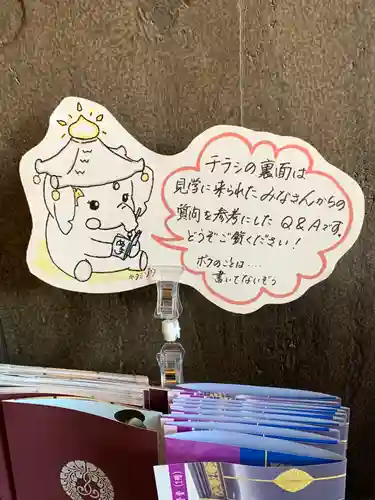 チラシの裏面は
見学に来られたみなさんからの
質問を参考にしたQ&Aです。
どうぞご覧ください!
ボクのことは....
書いてないぞう